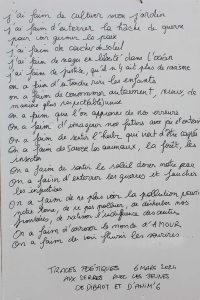 J'ai faim de cultiver mon jardin
J'ai faim d'enterrer la hache de guerre
pour conjurer la paix
J'ai faim de cacher de soleil
J'ai faim de nager en liberté dans l'océan
J'ai faim de justice, qu'il n'y ait plus de
on a faim d'entendre rire les enfants
on a faim de consommer autrement, mieux, de
manière plus respectueuse
On a faim que l'on apprenne de nos erreurs
On a faim d'imaginer nos futurs
On a faim de sentir l'herbe qui vient d'être coupée
On a faim de sauver les animaux, la forêt, les
insectes
On a faim de sentir le soleil dorer notre peau
On a faim d'enterrer les guerres et faucher
les injustices
On a faim de ne plus voir la pollution pourrir
notre terre, de ne pas polluer, de
frontières, de
On a faim d'arroser le monde d'AMOUR
On a faim de voir fleurir les sourires
TRACES POÉTIQUES 6 MARS 2021
AUX SERRES AVEC LES JEUNES
DE DIBROT ET D'ANIM'6